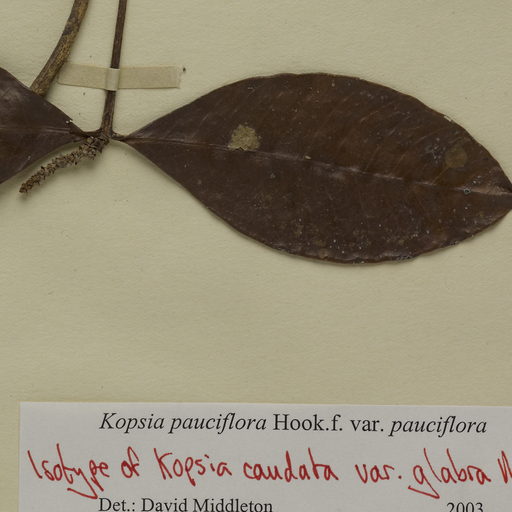 Kopsia pauciflora Hook.f. var. pauciflora
Isotype of Kopsia caudata var. glabra
Det.: David Middleton 2003